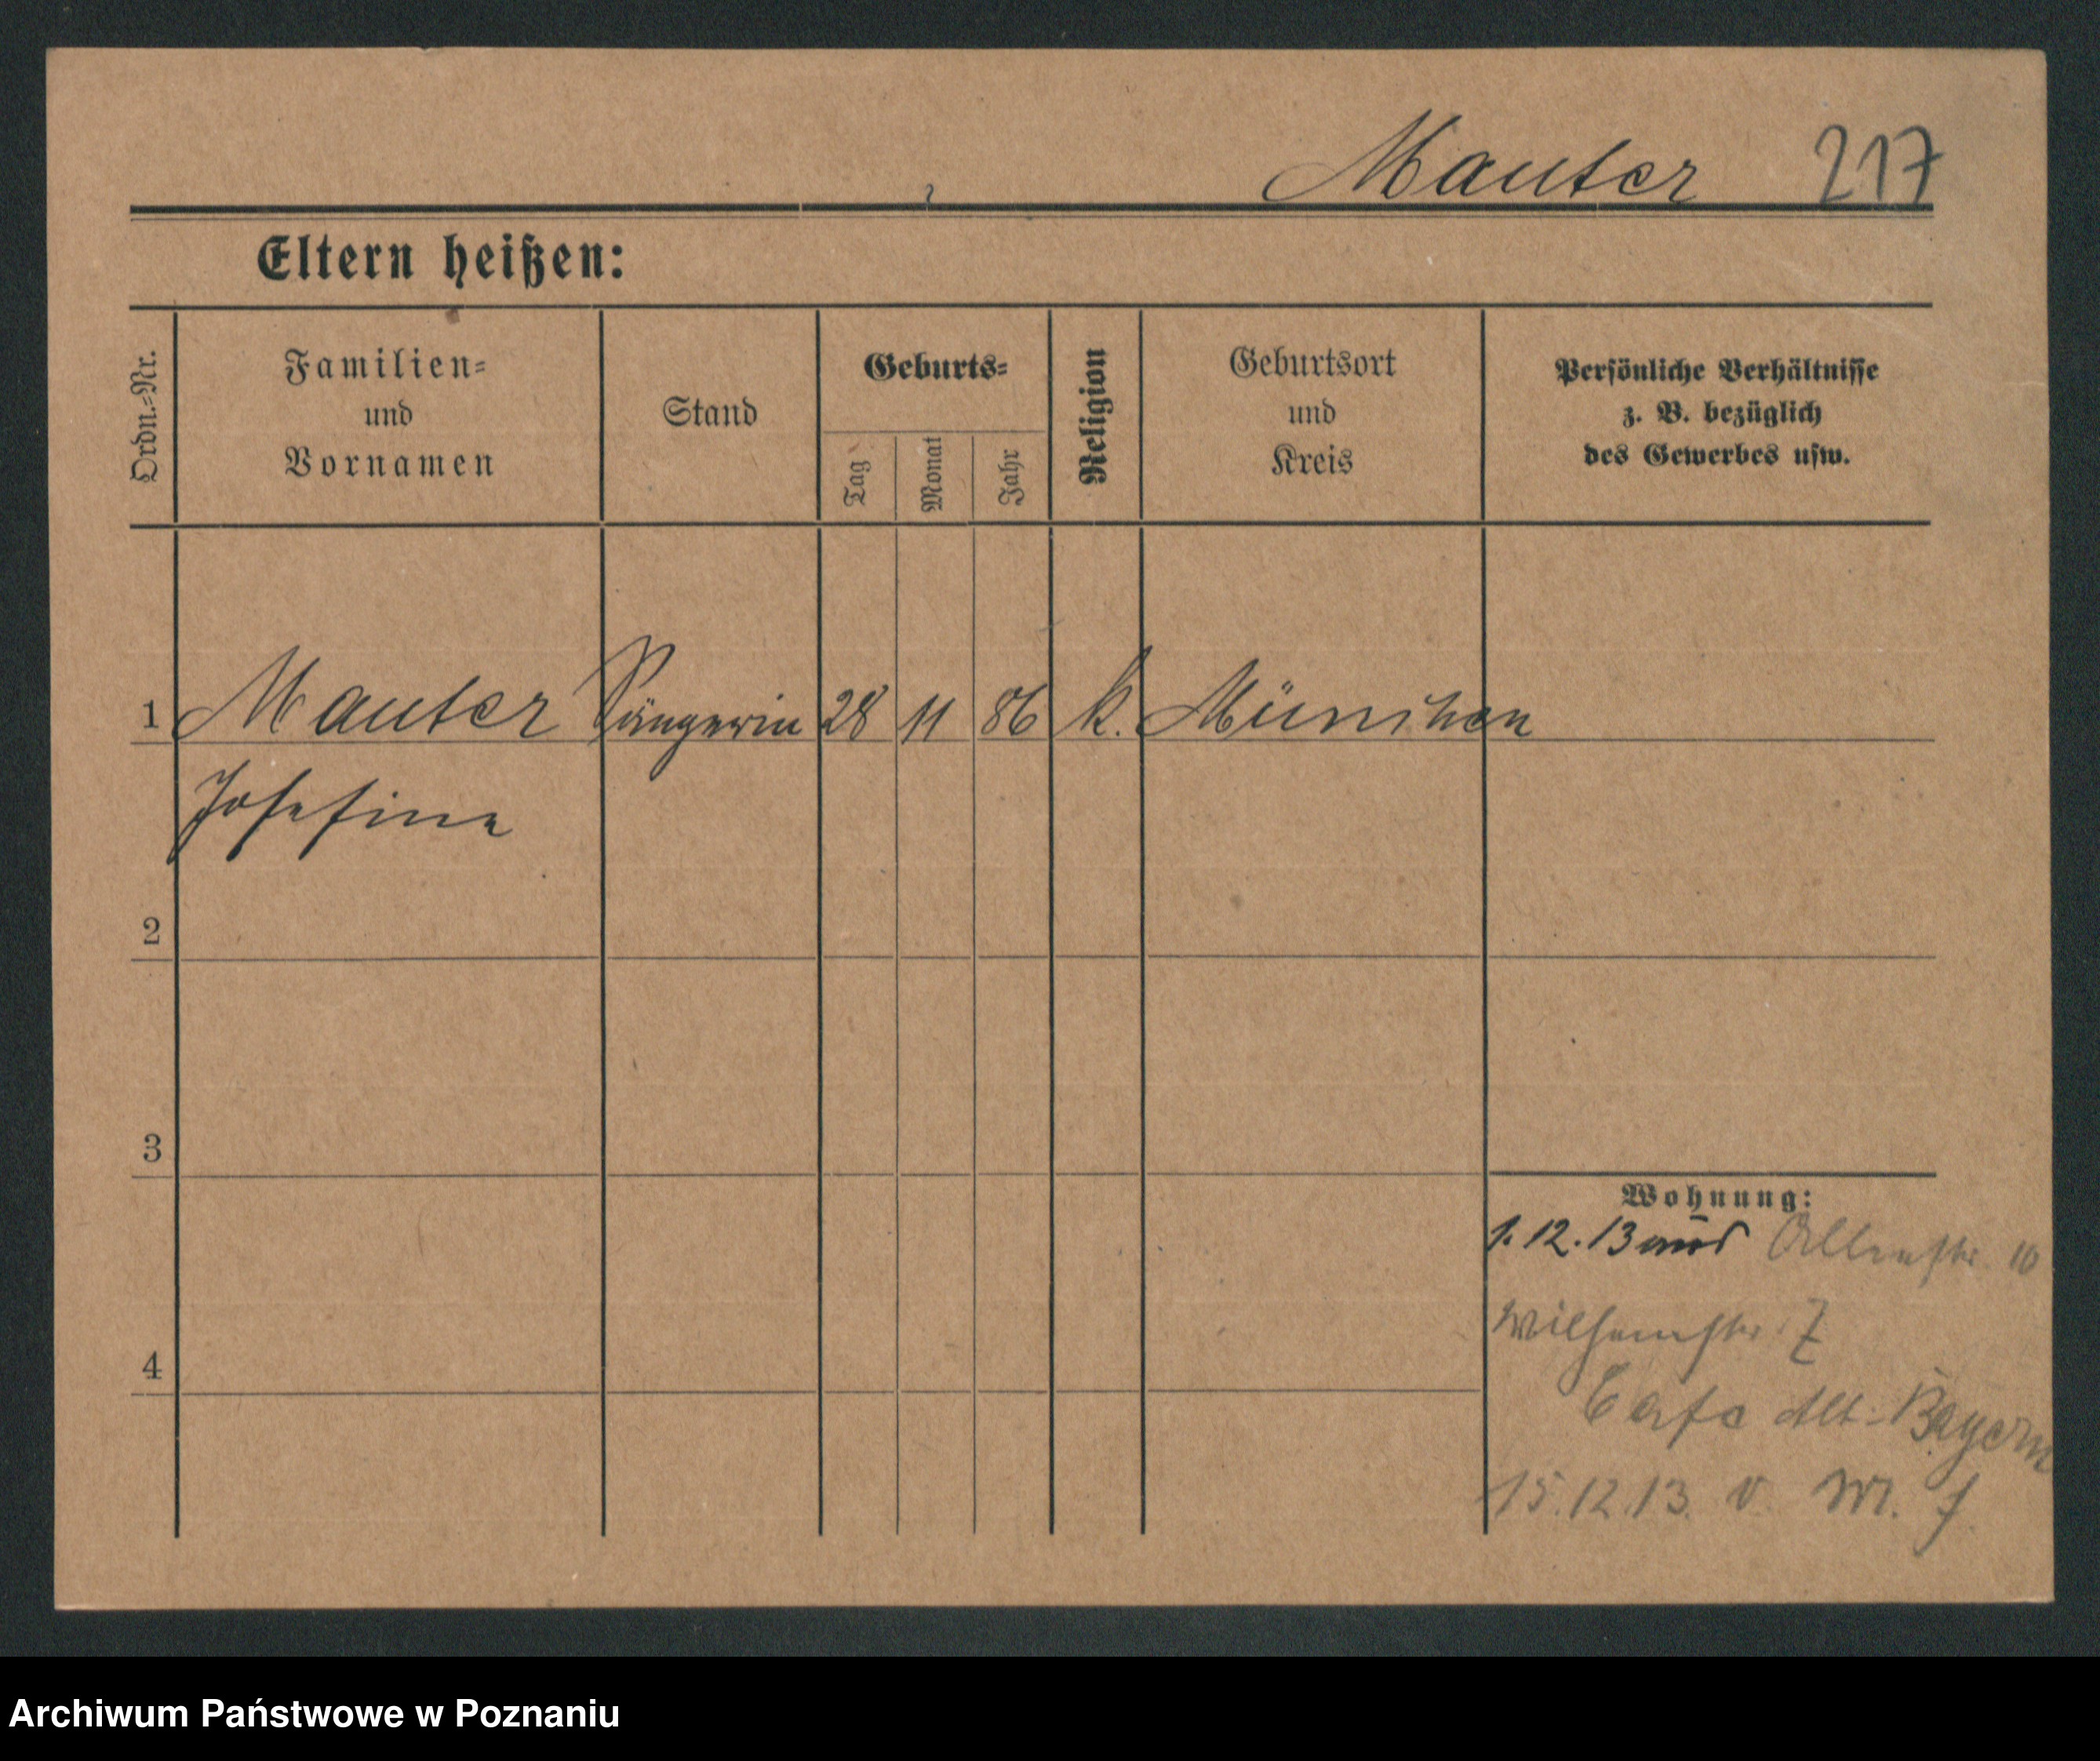 Mauter 217
Eltern heißen:
Ordn.=Nr.
Familien=
und
Vornamen
Stand
Geburts=
Tag
Monat
Jahr
Religion
Geburtsort
und
Kreis
Persönliche Verhältnisse
z. B. bezüglich
des Gewerbes usw.
1 Mauter Sängerin 28 11 86 k. München
Josefine
2
3
4
Wohnung:
1. 12. 13 aus 10
Wilhemstr. 7
Cafe Alt-Bayern
15.12.13. v. M.
Archiwum Państwowe w Poznaniu